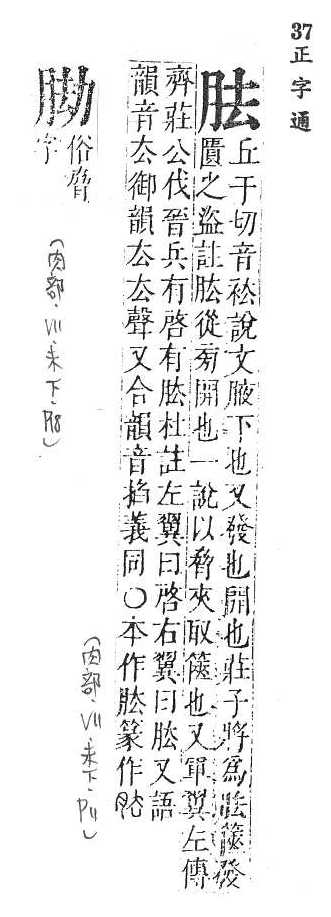 37 正字通
胠
丘于切音袪說文腋下也又發也開也莊子將爲胠篋發
匱之盜註胠從旁開也一說以脅夾取篋也又軍翼左傳
齊莊公伐晉兵有啓有胠杜註左翼曰啓右翼曰胠又語
韻音去御韻去去聲又合韻音掐義同○本作胠篆作
(肉部.VII.未下.P11)
𦛗
俗脅
字
(肉部.VII.未下.P18)